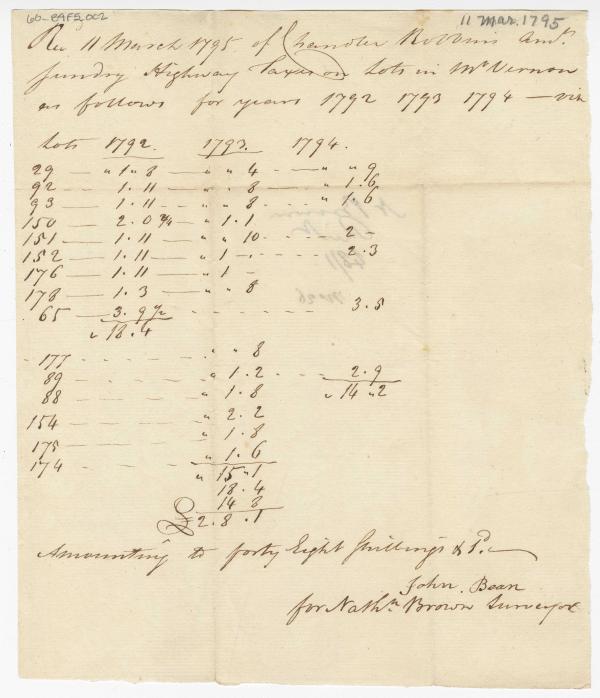 60-RAF5.002
11 Mar. 1795
Rec 11 March 1795 of Chandler Robbins Amt.
sundry Highway Taxes on Lots in Mt Vernon
as follows for years 1792 1793 1794 — viz
Lots 1792. 1793. 1794.
29 — " 1 " 8 — " " 4 - - — " " 9
92 — 1. 11 — " " 8 - - - " 1. 6
93 — 1. 11 — " " 8 - - - " 1. 6
150 — 2. 0 3/4 — " 1. 1
151 — 1. 11 — " " 10 - - - 2 —
152 — 1. 11 — " 1 - . - - - 2. 3
176 — 1. 11 — " 1 -
178 — 1. 3 — " " 8
65 — 3. 9 1/2 - - - - - - 3. 5
" 18. 4
177 - - - - - " " 8
89 - - - - - " 1. 2 - - - 2. 9
88 - - - - - " 1. 8 " 14 " 2
154 - - - - - " 2. 2
175 - - - - - " 1. 8
174 - - - - - " 1. 6
" 15 " 1
18. 4
14 8
£ 2. 8. 1
Amounting to forty Eight Shillings & 1d.
John Bean
for Nathn Brown Surveyor